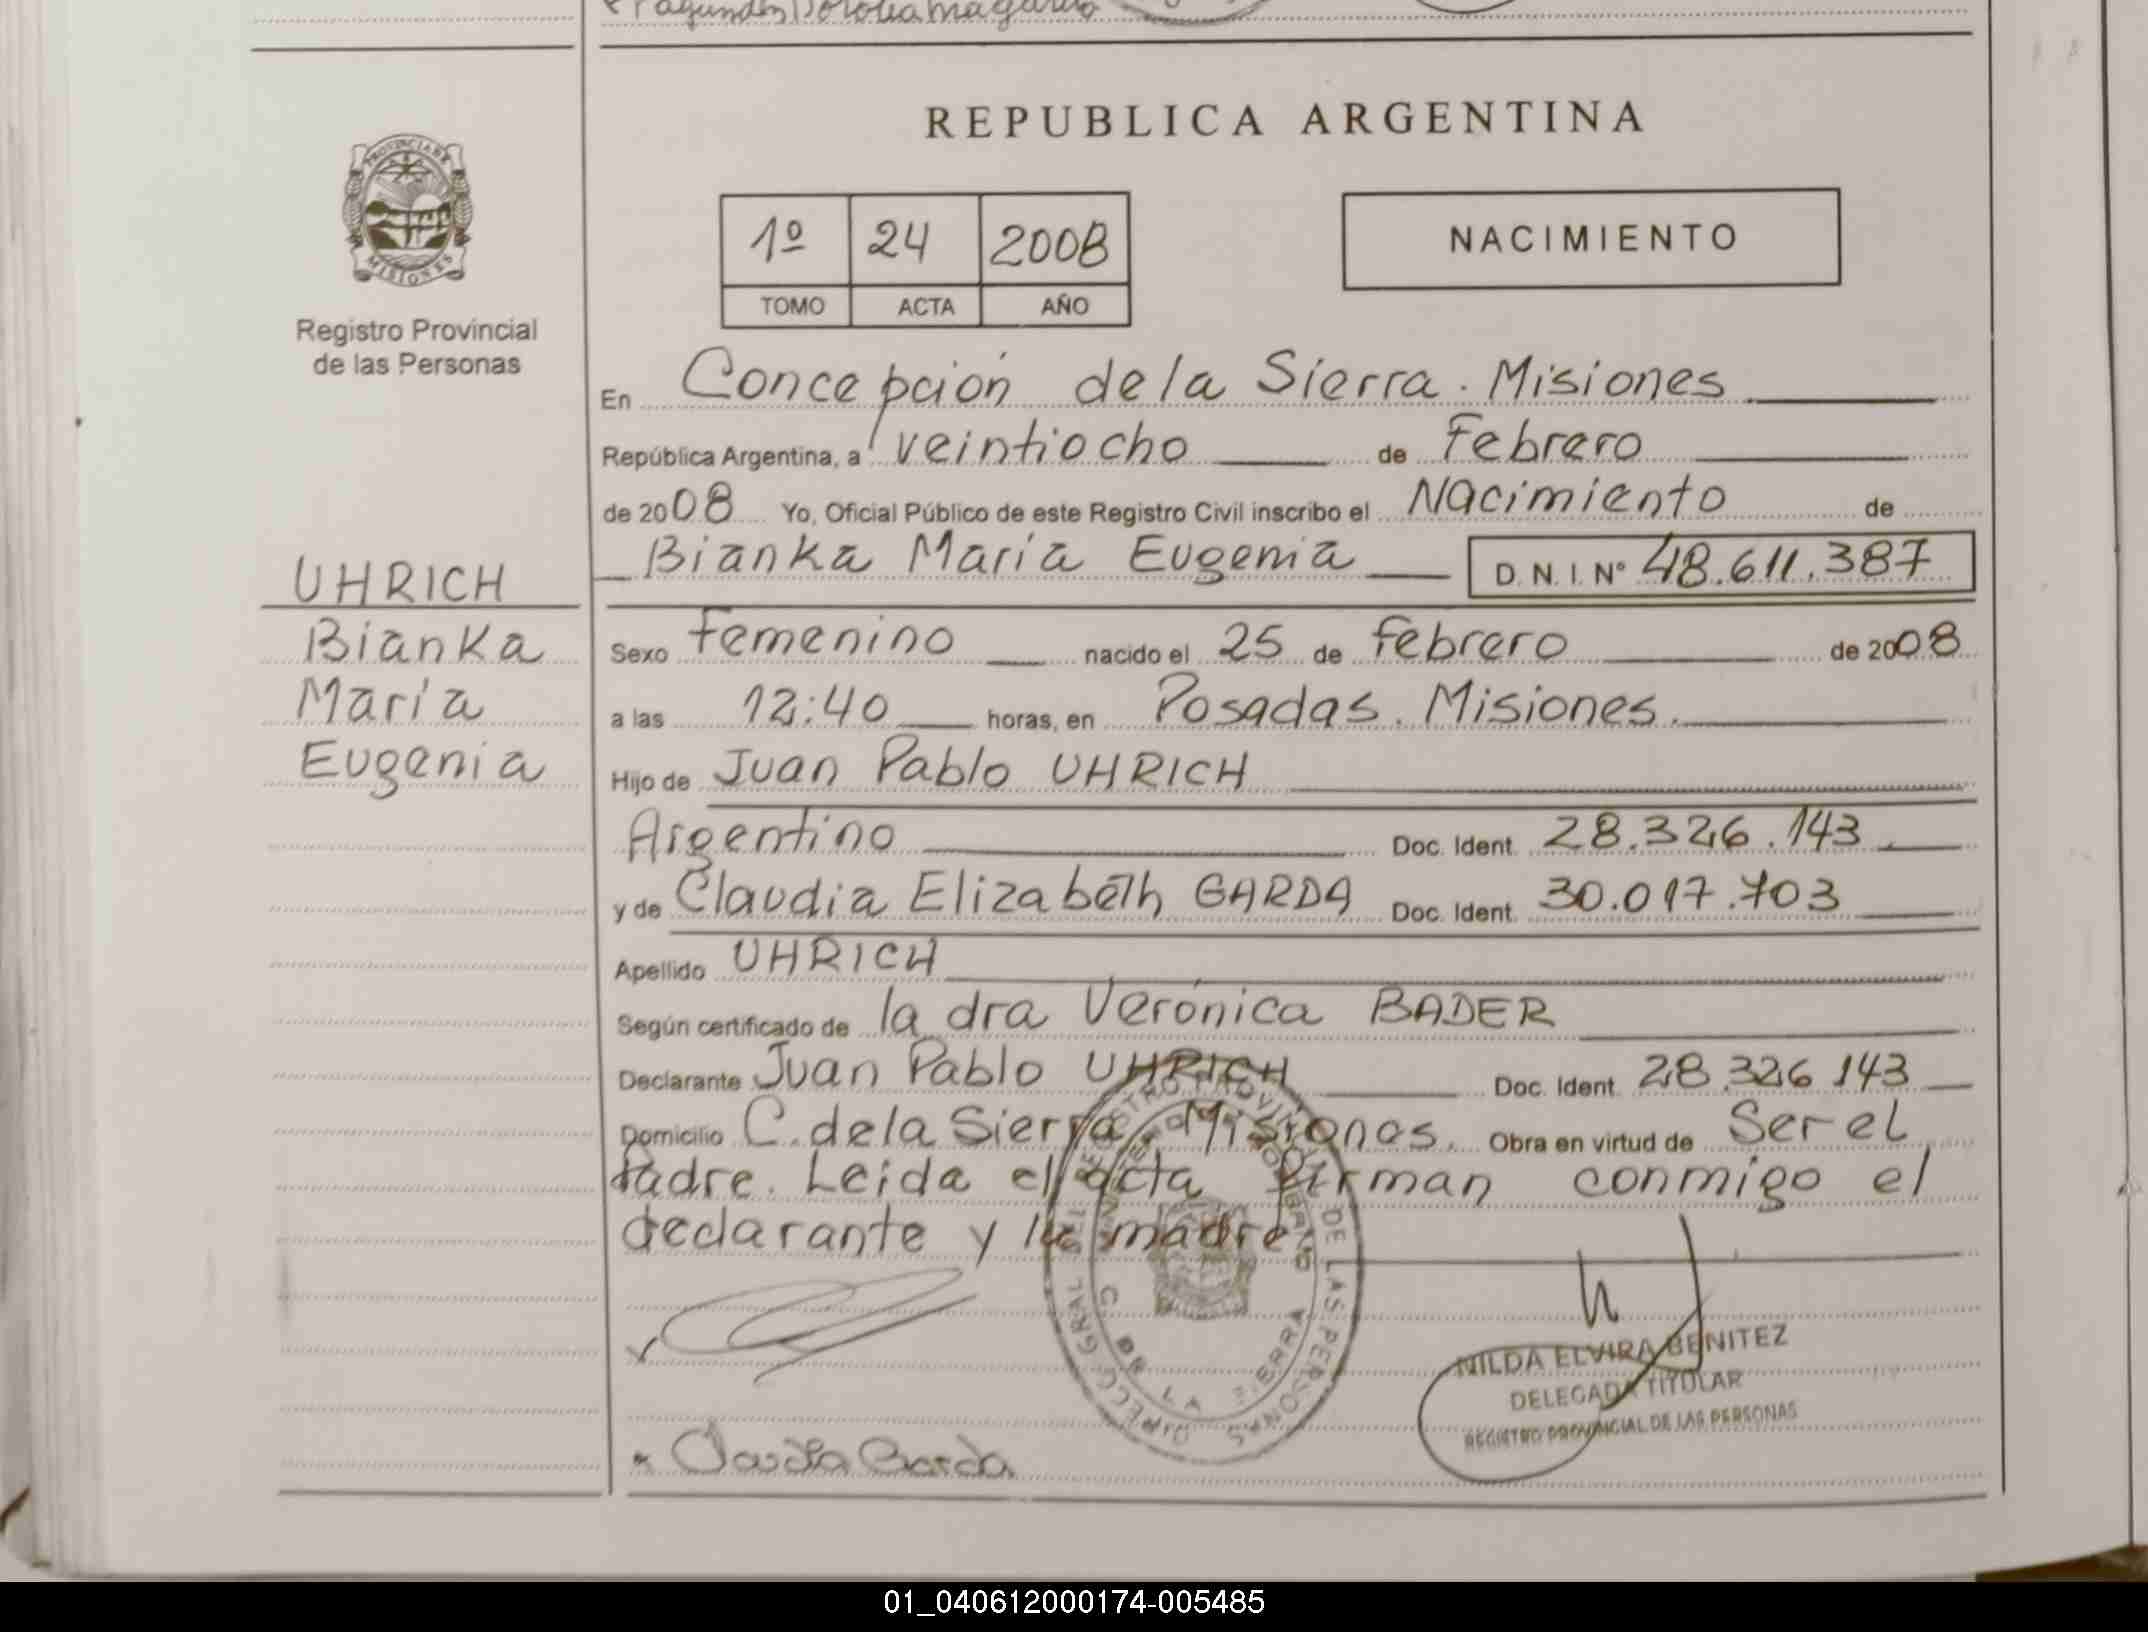 REPUBLICA ARGENTINA
PROVINCIA DE
MISIONES
Registro Provincial
de las Personas
1º 24 2008
TOMO ACTA AÑO
NACIMIENTO
En Concepción de la Sierra. Misiones
República Argentina, a veintiocho de Febrero
de 2008 Yo, Oficial Público de este Registro Civil inscribo el Nacimiento de
Bianka María Eugenia D. N. I. Nº 48.611.387
UHRICH
Bianka
María
Eugenia
Sexo Femenino nacido el 25 de febrero de 2008
a las 12:40 horas, en Posadas. Misiones.
Hijo de Juan Pablo UHRICH
Argentino Doc. Ident. 28.326.143
y de Claudia Elizabeth GARDA Doc. Ident. 30.017.703
Apellido UHRICH
Según certificado de la dra Verónica BADER
Declarante Juan Pablo UHRICH Doc. Ident. 28.326.143
Domicilio C. de la Sierra, Misiones. Obra en virtud de Ser el
Padre. Leida el acta firman conmigo el
declarante y la madre
DE LAS PERSONAS
C. DE LA SIERRA
NILDA ELVIRA BENITEZ
DELEGADA TITULAR
REGISTRO PROVINCIAL DE LAS PERSONAS
Claudia Garda
01_040612000174-005485